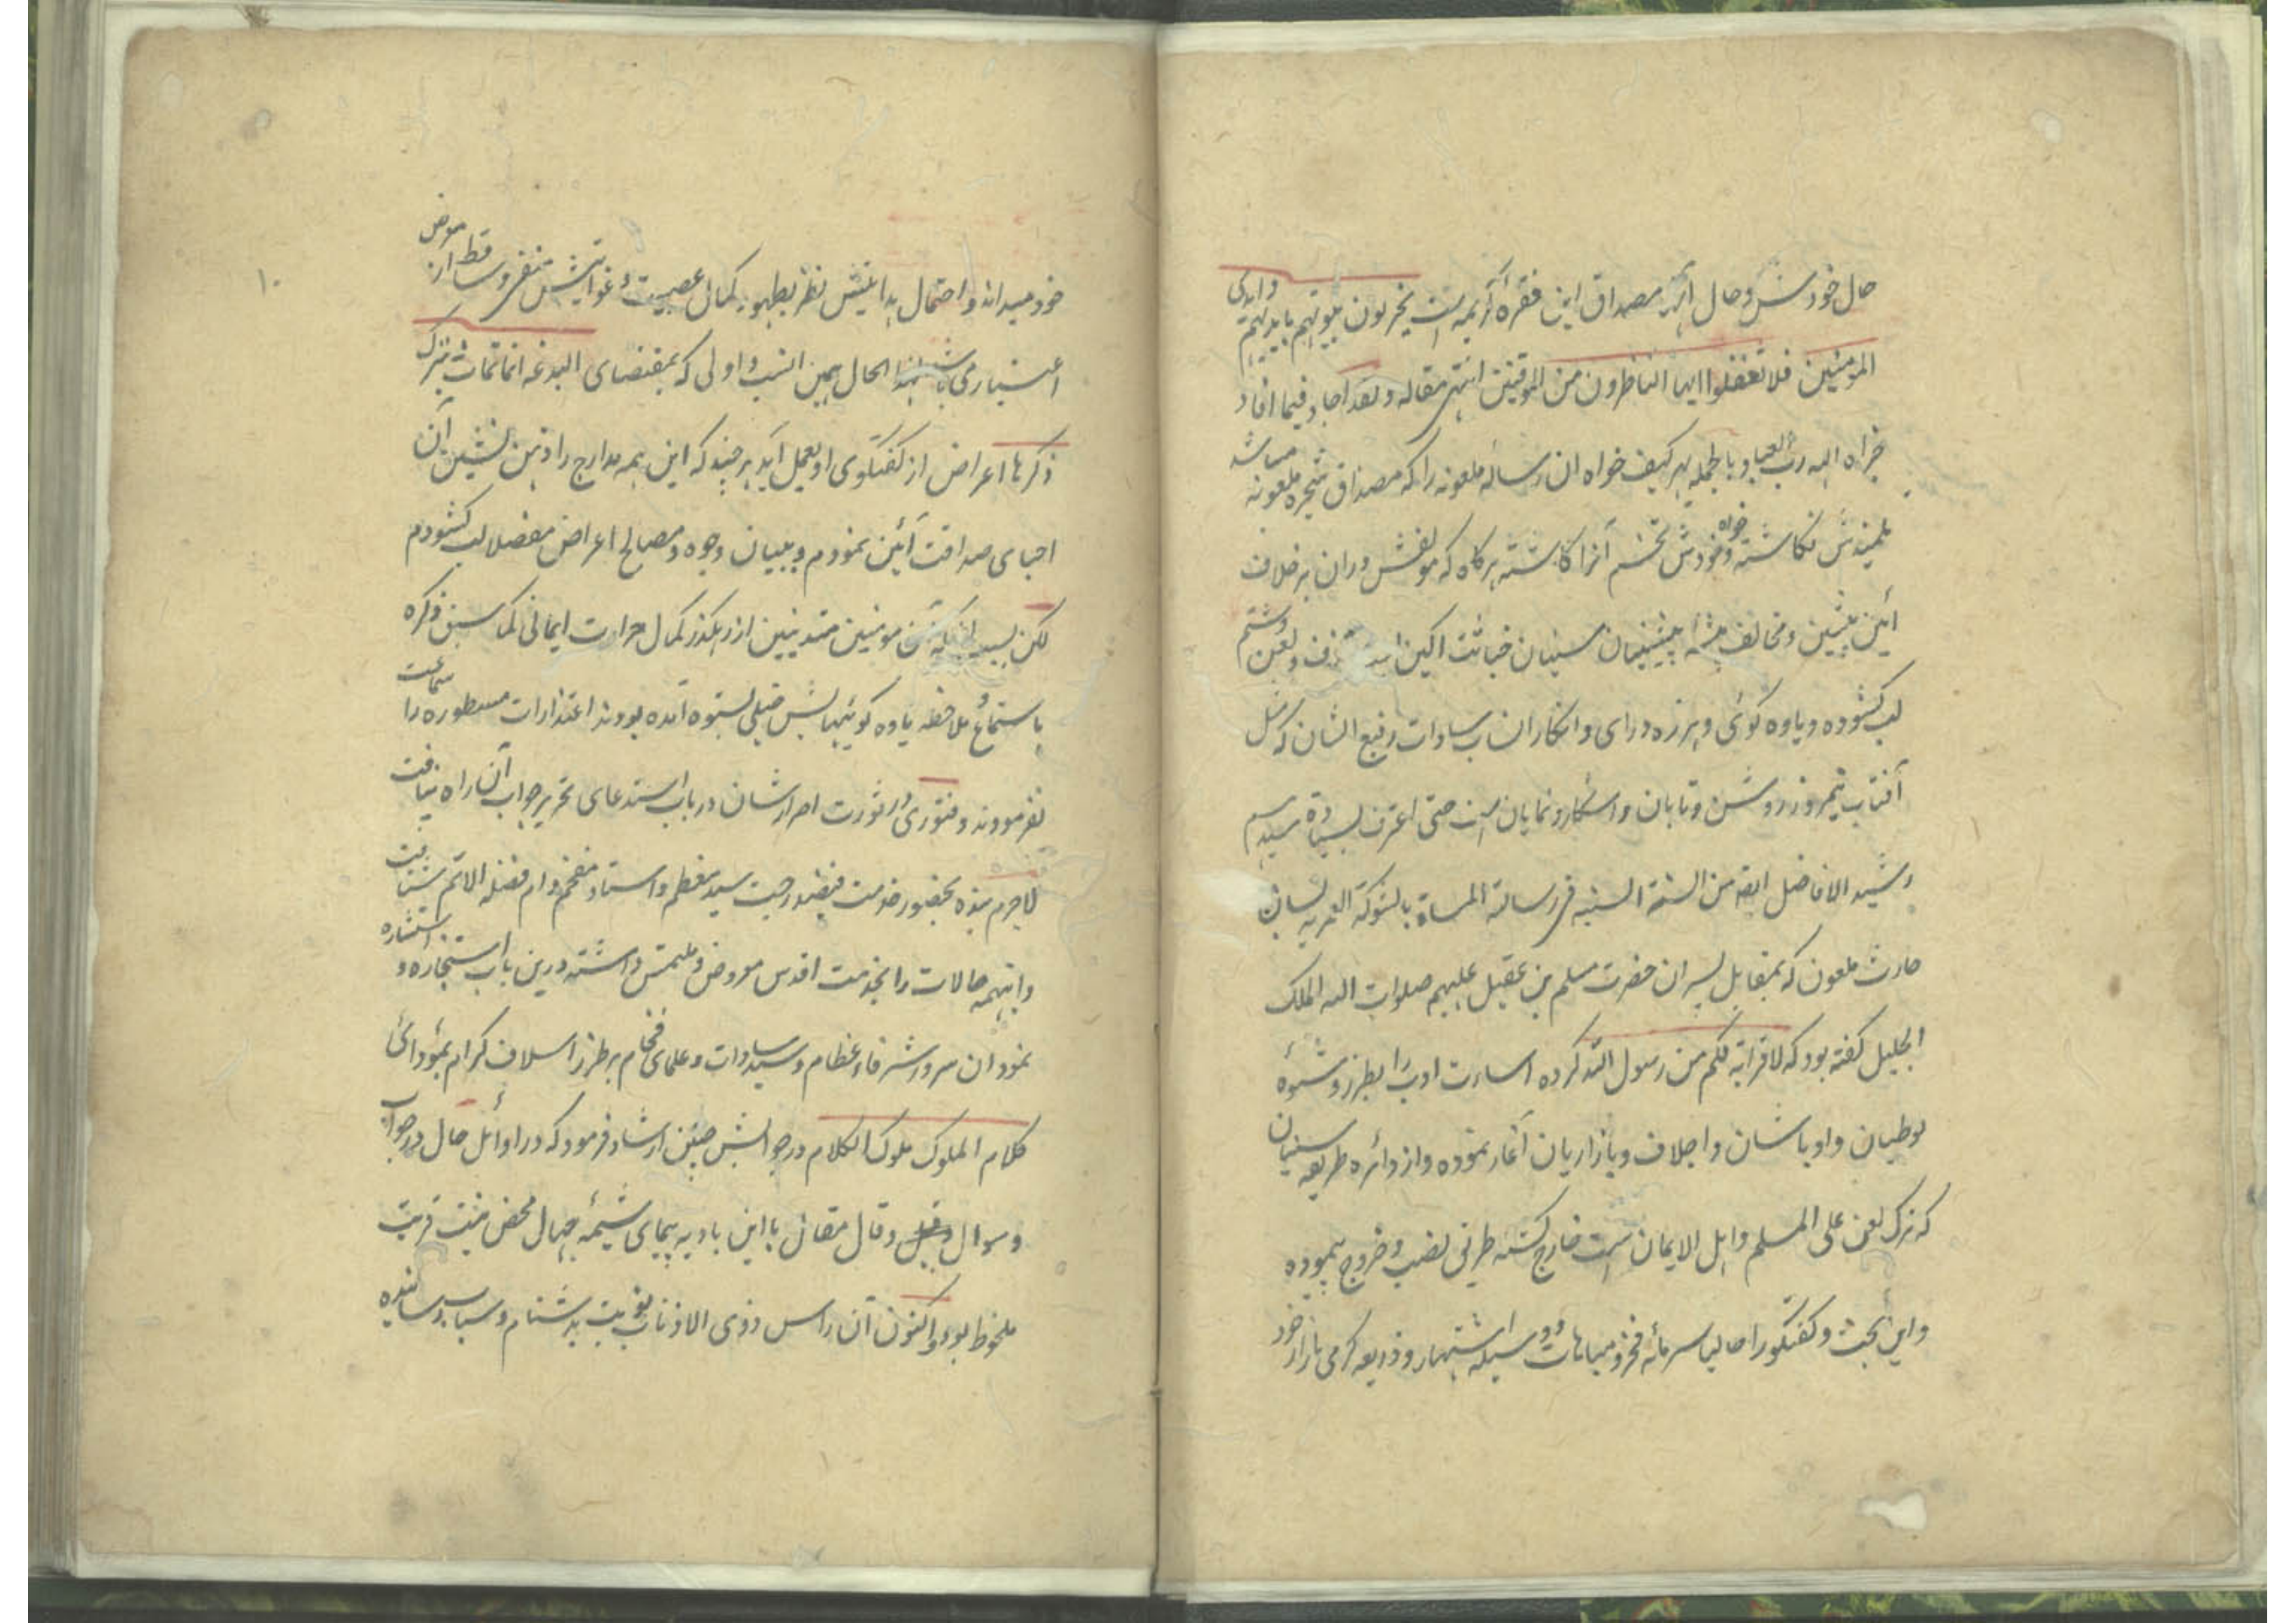 حال خودش و حال آن مصداق این فقرهٔ کریمه است یخربون بیوتهم بایدیهم وایدی
المومنین فلا تغفلوا ایها الناظرون من الموقنین انتهی مقاله و لقد اجاد فیما افاد
جزاه الله رب العباد و بالجمله بهر کیف خواه ان رساله ملعونه را که مصداق شجره ملعونه میباشد
تلمیذش نگاشته و خواه خودش تخم آنرا کاشته هر گاه که مولفش دران بر خلاف
آئین پیشین و مخالف پیشینیان سنیان خباثت اکین قذف و لعن و شتم
لب کشوده و یاوه کوئی و هرزه درای و انکار انساب سادات رفیع الشان که مثل
آفتاب نیمروز روشن و تابان و اشکار و نمایان است حتی اعترف بسیادة سیدهم
رشید الافاضل ایضه من السنة السنیه فی رسالته المسماة بالشوکة العمریه لسان
حارث ملعون که بمقابل پسران حضرت مسلم بن عقیل علیهم صلوات الله الملک
الجلیل کفته بود که لا قرابة لکم من رسول الله کرده اسارت ادب را بطرز و شیوهٔ
لوطیان و اوباشان و اجلاف و بازاریان آغاز نموده و از دائره طریقه سنیان
که ترک لعن علی المسلم و اهل الایمان است خارج کشته طریق نصب و خروج پیموده
و این بحث و کفتکو را حالیا سرمائه فخر و مباهات و وسیله اشتهار و ذریعه کرمی بازار خود
۱۰
خود میداند و احتمال هدایتش نظر بظهور کمال عصبیت و غوایتش منتفی و ساقط از معرض
اعتبار می باشد بهذا الحال همین انسب و اولی که بمقتضای البدعة انما تمات بترک
ذکرها اعراض از کفتکوی او بعمل آید هر چند که این همه مدارج را ذهن نشین آن
احبای صداقت آئین نمودم و ببیان وجوه و مصالح اعراض مفصلا لب کشودم
لکن بسبب اینکه مومنین متدینین از رهکذر کمال حرارت ایمانی کما سبق ذکره
باستماع و ملاحظه یاوه کوئیهایش خیلی بستوه آمده بودند اعتذارات مسطوره را سماعت
نفرمودند و فتوری در ثورت اصرارشان در باب استدعای تحریر جواب آن راه نیافت
لاجرم بنده بحضور خدمت فیضدرجت سید معظم و استاد مفخم دام فضله الاتم شتافت
و اینهمه حالات را بخدمت اقدس معروض و ملتمس داشته درین باب استجازه و استشاره
نمود ان سرور شرفاء عظام و سید سادات و علمای فخام بر طرز اسلاف کرام بمؤدائ
کلام الملوک ملوک الکلام در جوابش چنین ارشاد فرمود که در اوائل حال در جواب
و سوال و قیل و قال مقاتل با این بادیه پیمای شیمهٔ جهال محض نیت قربت
ملحوظ بود و اکنون آن راس و ذی الاذناب نوبت بدشنام و سباب رسانیده